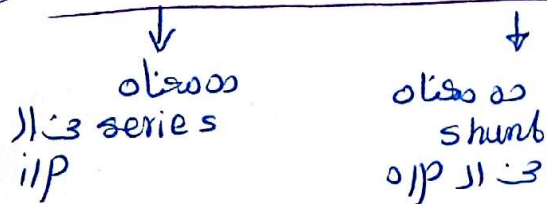 ده معناه
series في ال
i/P
ده معناه
shunt
في ال o/P